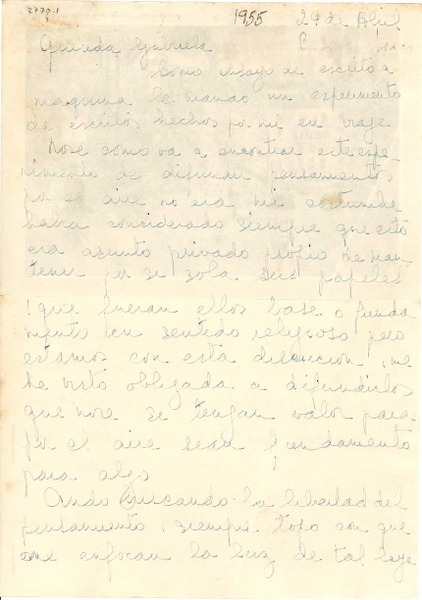 2770.1
1955 29 de Abril
Querida Gabriela
Como ensayo de escrito a
maquina le mando un esperimento
de escritos hechos por mi en viaje
Nose como va a encontrar este espe-
rimento de difundir pensamientos
por el aire no era mi costumbre
habia considerado siempre que esto
era asunto privado propio de man
tener por si sola sus papeles
! que fueran ellos base o funda
mento en sentido religioso pero
estamos con esta discucion, me
he visto obligada a difundirlos
que nose si tengan valor para
por el aire sean fundamento
para algo
Ando buscando la libertad del
pensamiento, siempre topo con que
me enfocan la luz de tal